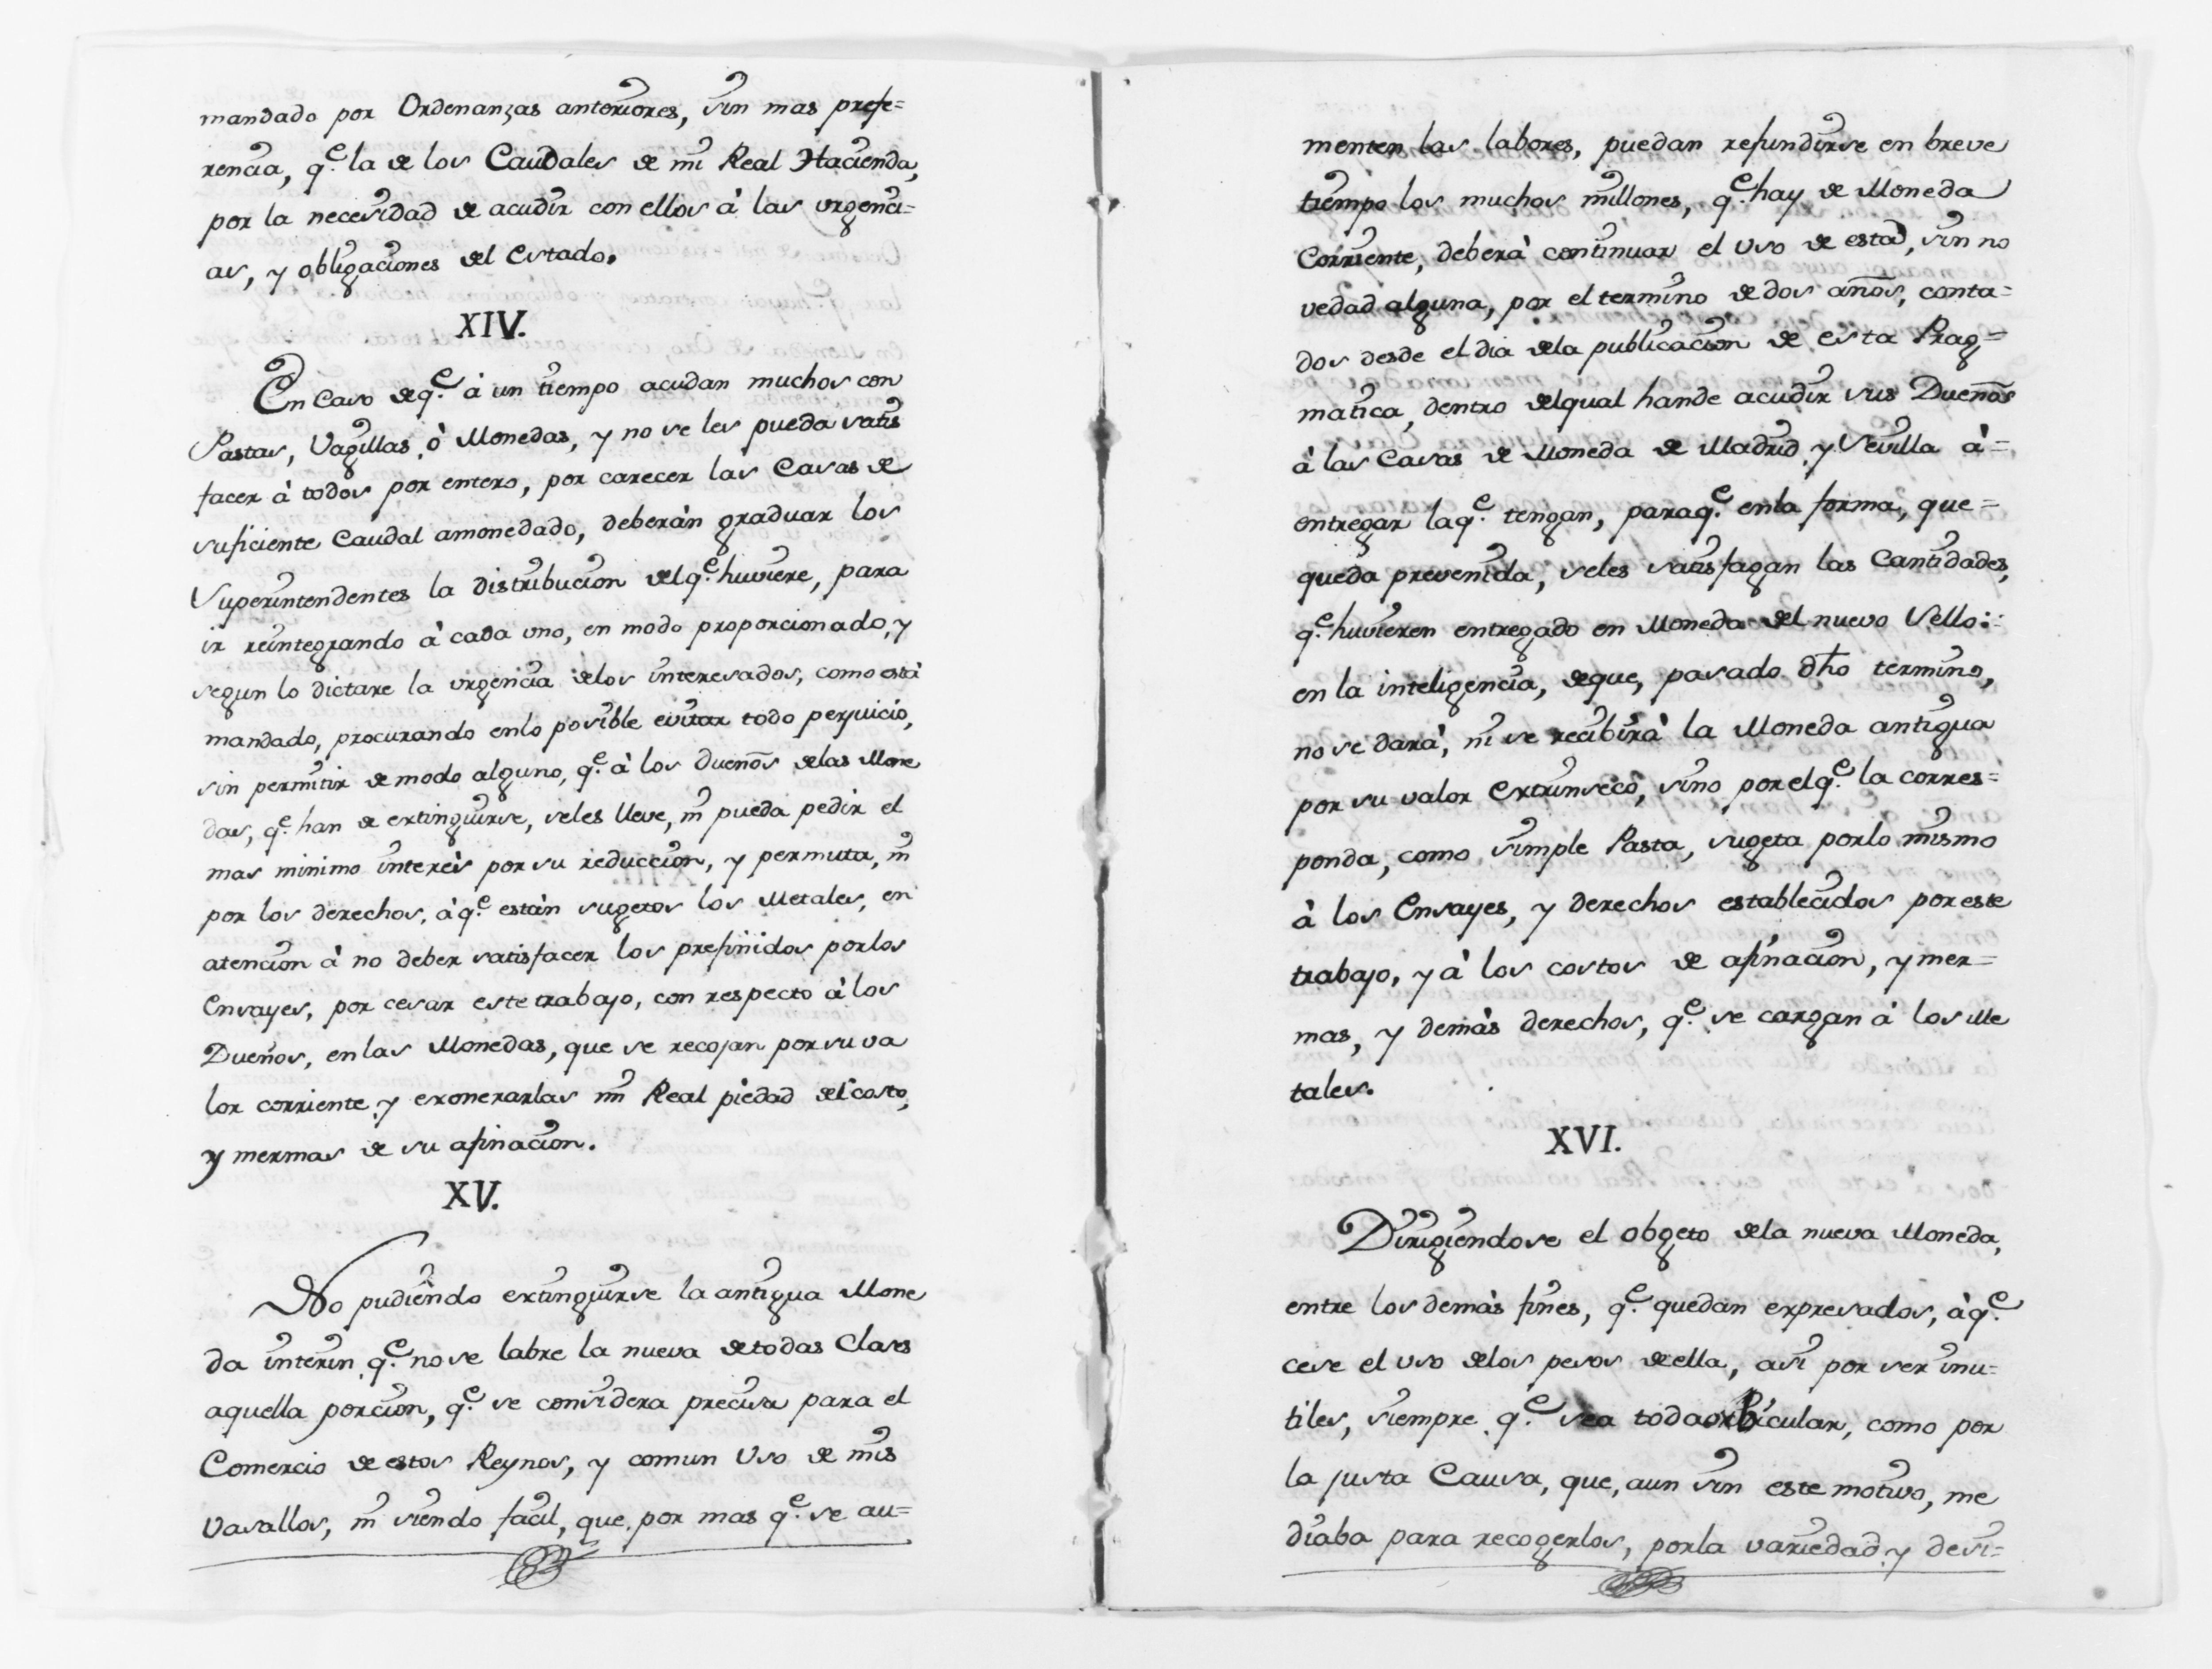 mandado por Ordenanzas anteriores, sin mas prefe=
rencia, q.e la de los Caudales de mi Real Hacienda,
por la necesidad de acudir con ellos à las urgenci=
as, y obligaciones del Estado.
XIV.
En Caso de q.e à un tiempo acudan muchos con
Pastas, Vagillas, ò Monedas, y no se les pueda satis
facer à todos por entero, por carecer las Casas de
suficiente Caudal amonedado, deberàn graduar los
Superintendentes la distribucion del q.e huviere, para
ir reintegrando à cada uno, en modo proporcionado, y
segun lo dictare la urgencia delos interesados, como està
mandado, procurando enlo posible evitar todo perjuicio,
sin permitir de modo alguno, q.e à los dueños delas Mone
das, q.e han de extinguirse, seles lleve, ni pueda pedir el
mas minimo interès por su reduccion, y permuta, ni
por los derechos, à q.e estàn sugetos los Metales, en
atencion à no deber satisfacer los prefinidos porlos
Ensayes, por cesar este trabajo, con respecto à los
Dueños, en las Monedas, que se recojan por su va
lor corriente, y exonerarlas mi Real piedad del costo,
y mermas de su afinacion.
XV.
No pudiendo extinguirse la antigua Mone
da interin q.e no se labre la nueva de todas Clases
aquella porcion, q.e se considera precisa para el
Comercio de estos Reynos, y comun Uso de mis
Vasallos, ni siendo facil, que por mas q.e se au=
menten las labores, puedan refundirse en breve
tiempo los muchos millones, q.e hay de Moneda
Corriente, deberà continuar el Uso de esta, sin no
vedad alguna, por el termino de dos años, conta=
dos desde el dia dela publicacion de esta Prag=
matica, dentro delqual hande acudir sus Dueños
à las Casas de Moneda de Madrid, y Sevilla à=
entregar laq.e tengan, paraq.e enla forma, que=
queda prevenida, seles satisfagan las Cantidades,
q.e huvieren entregado en Moneda del nuevo Sello:
en la inteligencia, deque, pasado dho termino,
no se darà, ni se recibirà la Moneda antigua
por su valor Extrinseco, sino por elq.e la corres=
ponda, como simple Pasta, sugeta porlo mismo
à los Ensayes, y derechos establecidos por este
trabajo, y à los costos de afinacion, y mer=
mas, y demàs derechos, q.e se cargan à los Me
tales.
XVI.
Dirigiendose el obgeto dela nueva Moneda,
entre los demàs fines, q.e quedan expresados, àq.e
cese el uso delos pesos deella, asi por ser inu=
tiles, siempre q.e sea toda orbicular, como por
la justa Causa, que, aun sin este motivo, me
diaba para recogerlos, porla variedad, y desi=